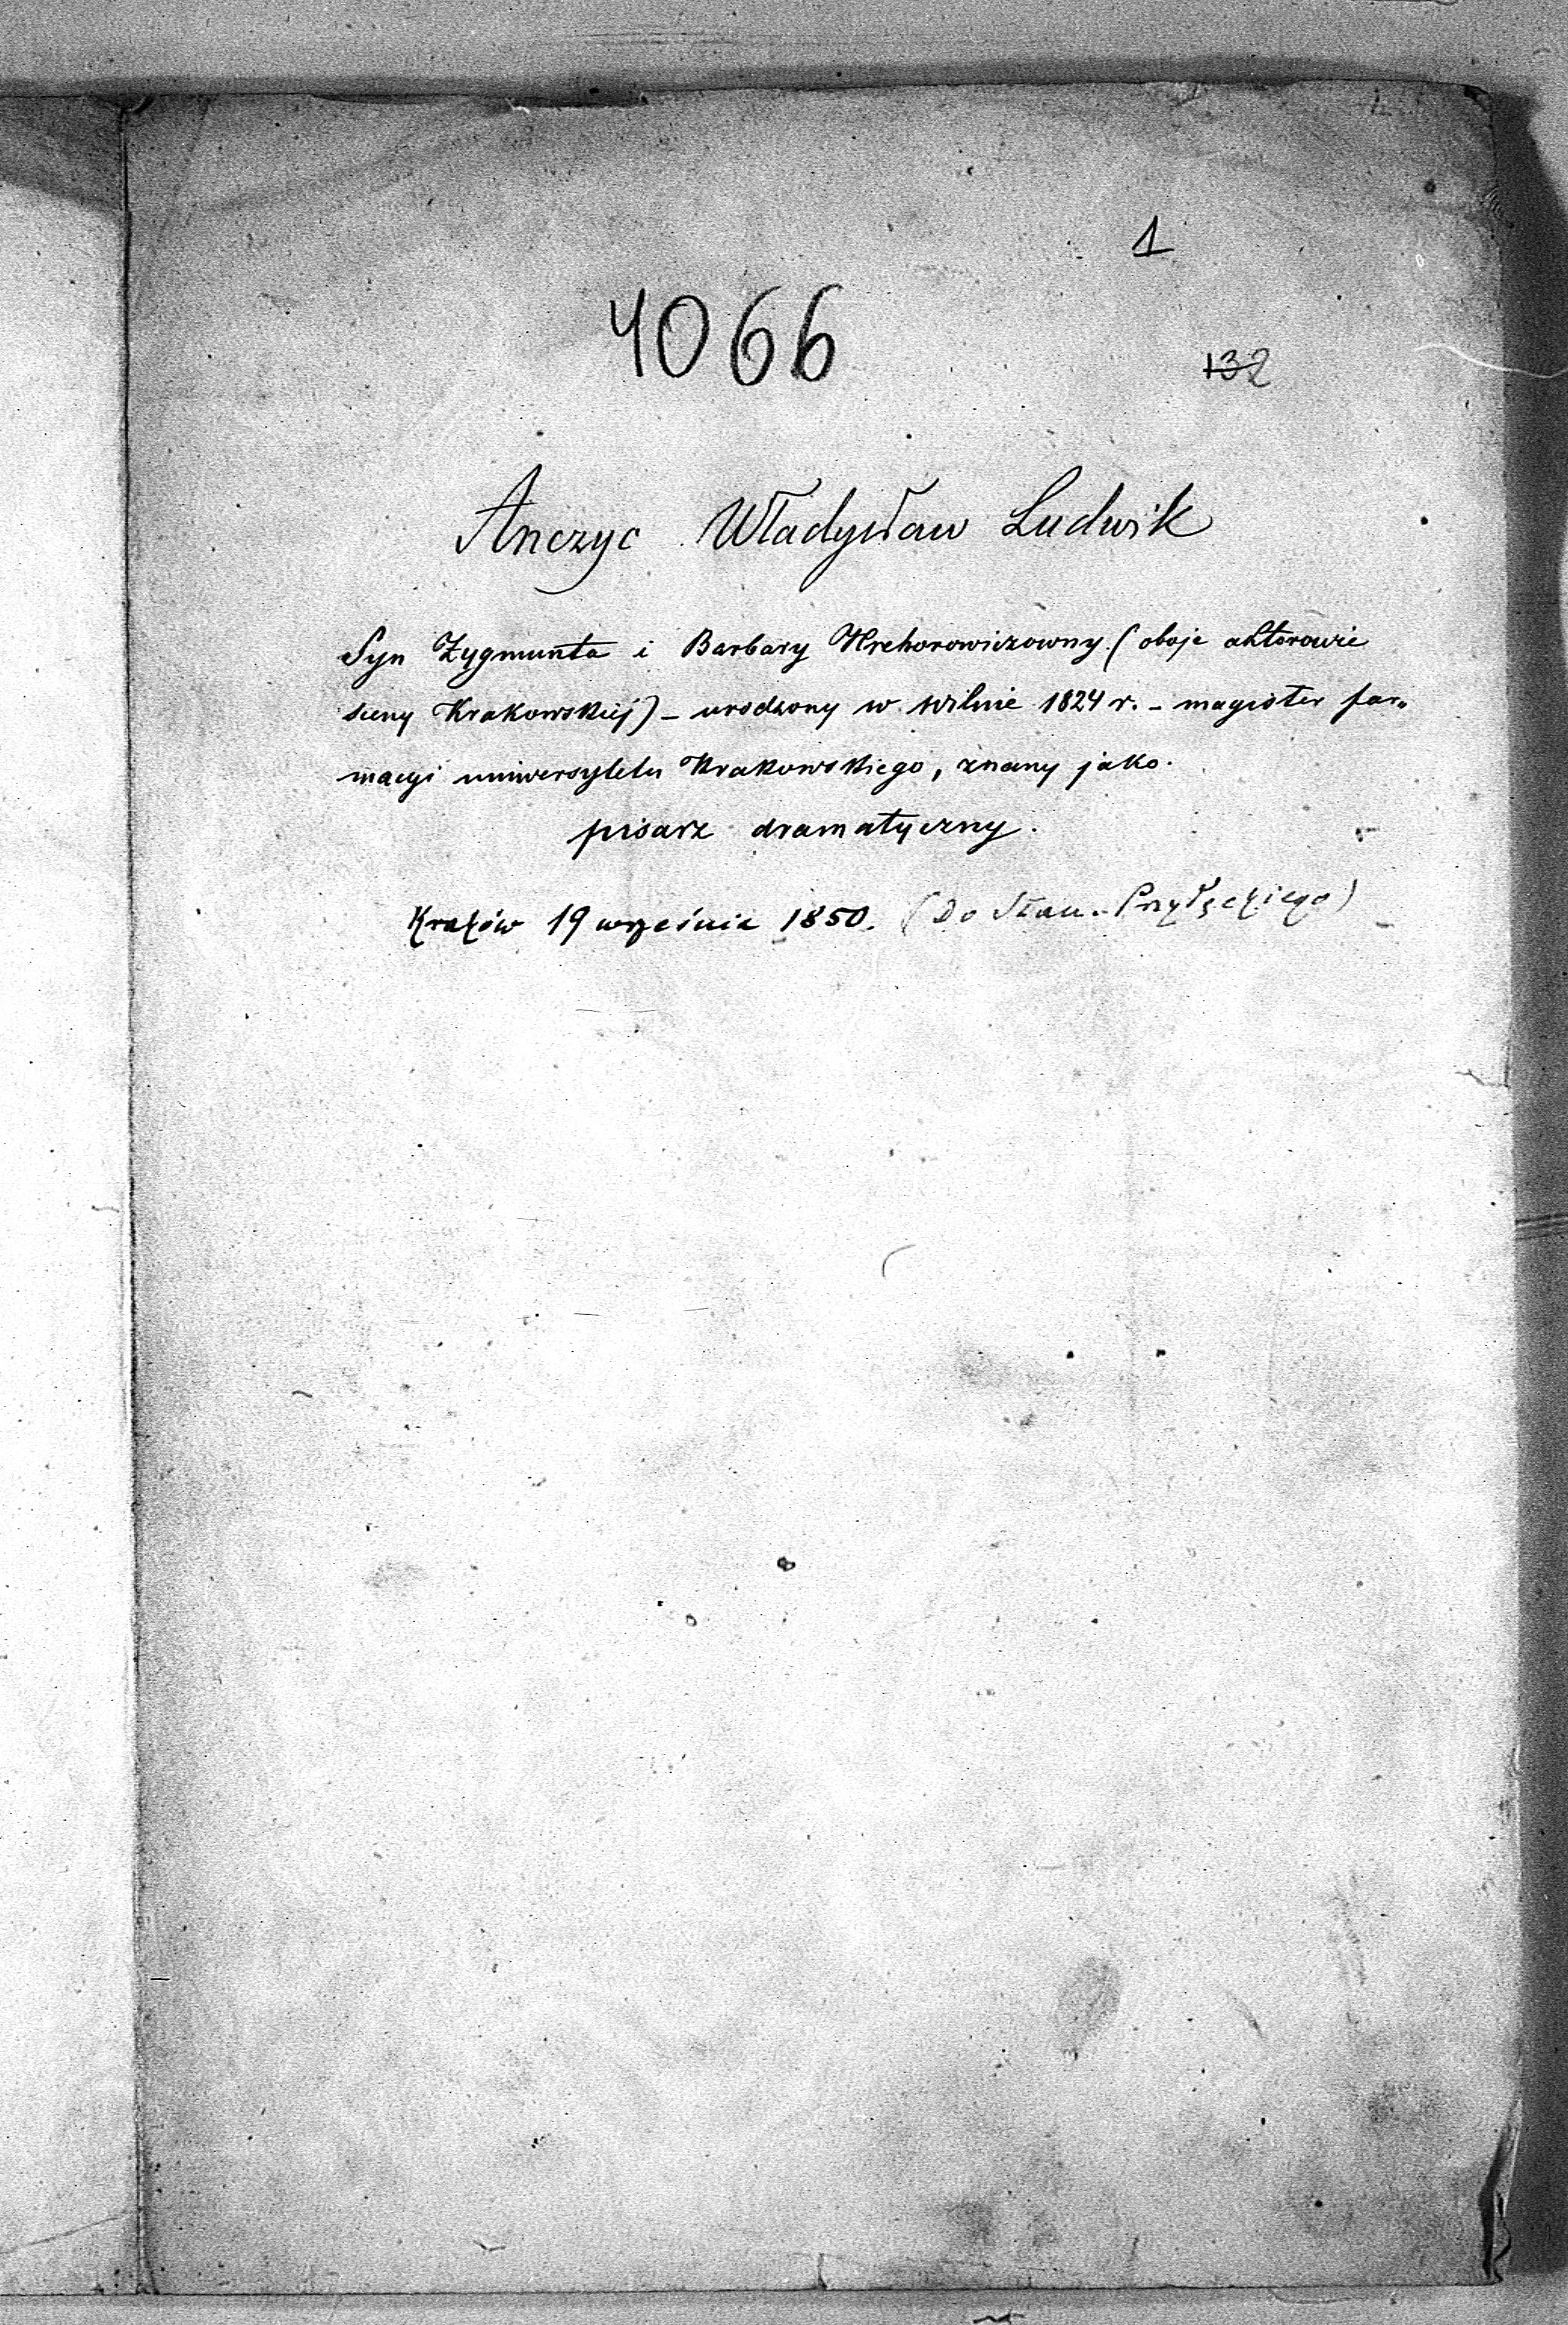 1
4066
132
Anczyc Władysław Ludwik
Syn Zygmunta i Barbary Hrehorowiczowny (oboje aktorowie
sceny Krakowskiej) – urodzony w Wilnie 1824 r. – magister far„
macyi uniwersytetu Krakowskiego, znany jako
pisarz dramatyczny.
Kraków 19 września 1850. (Do Stan. Przyłęckiego)